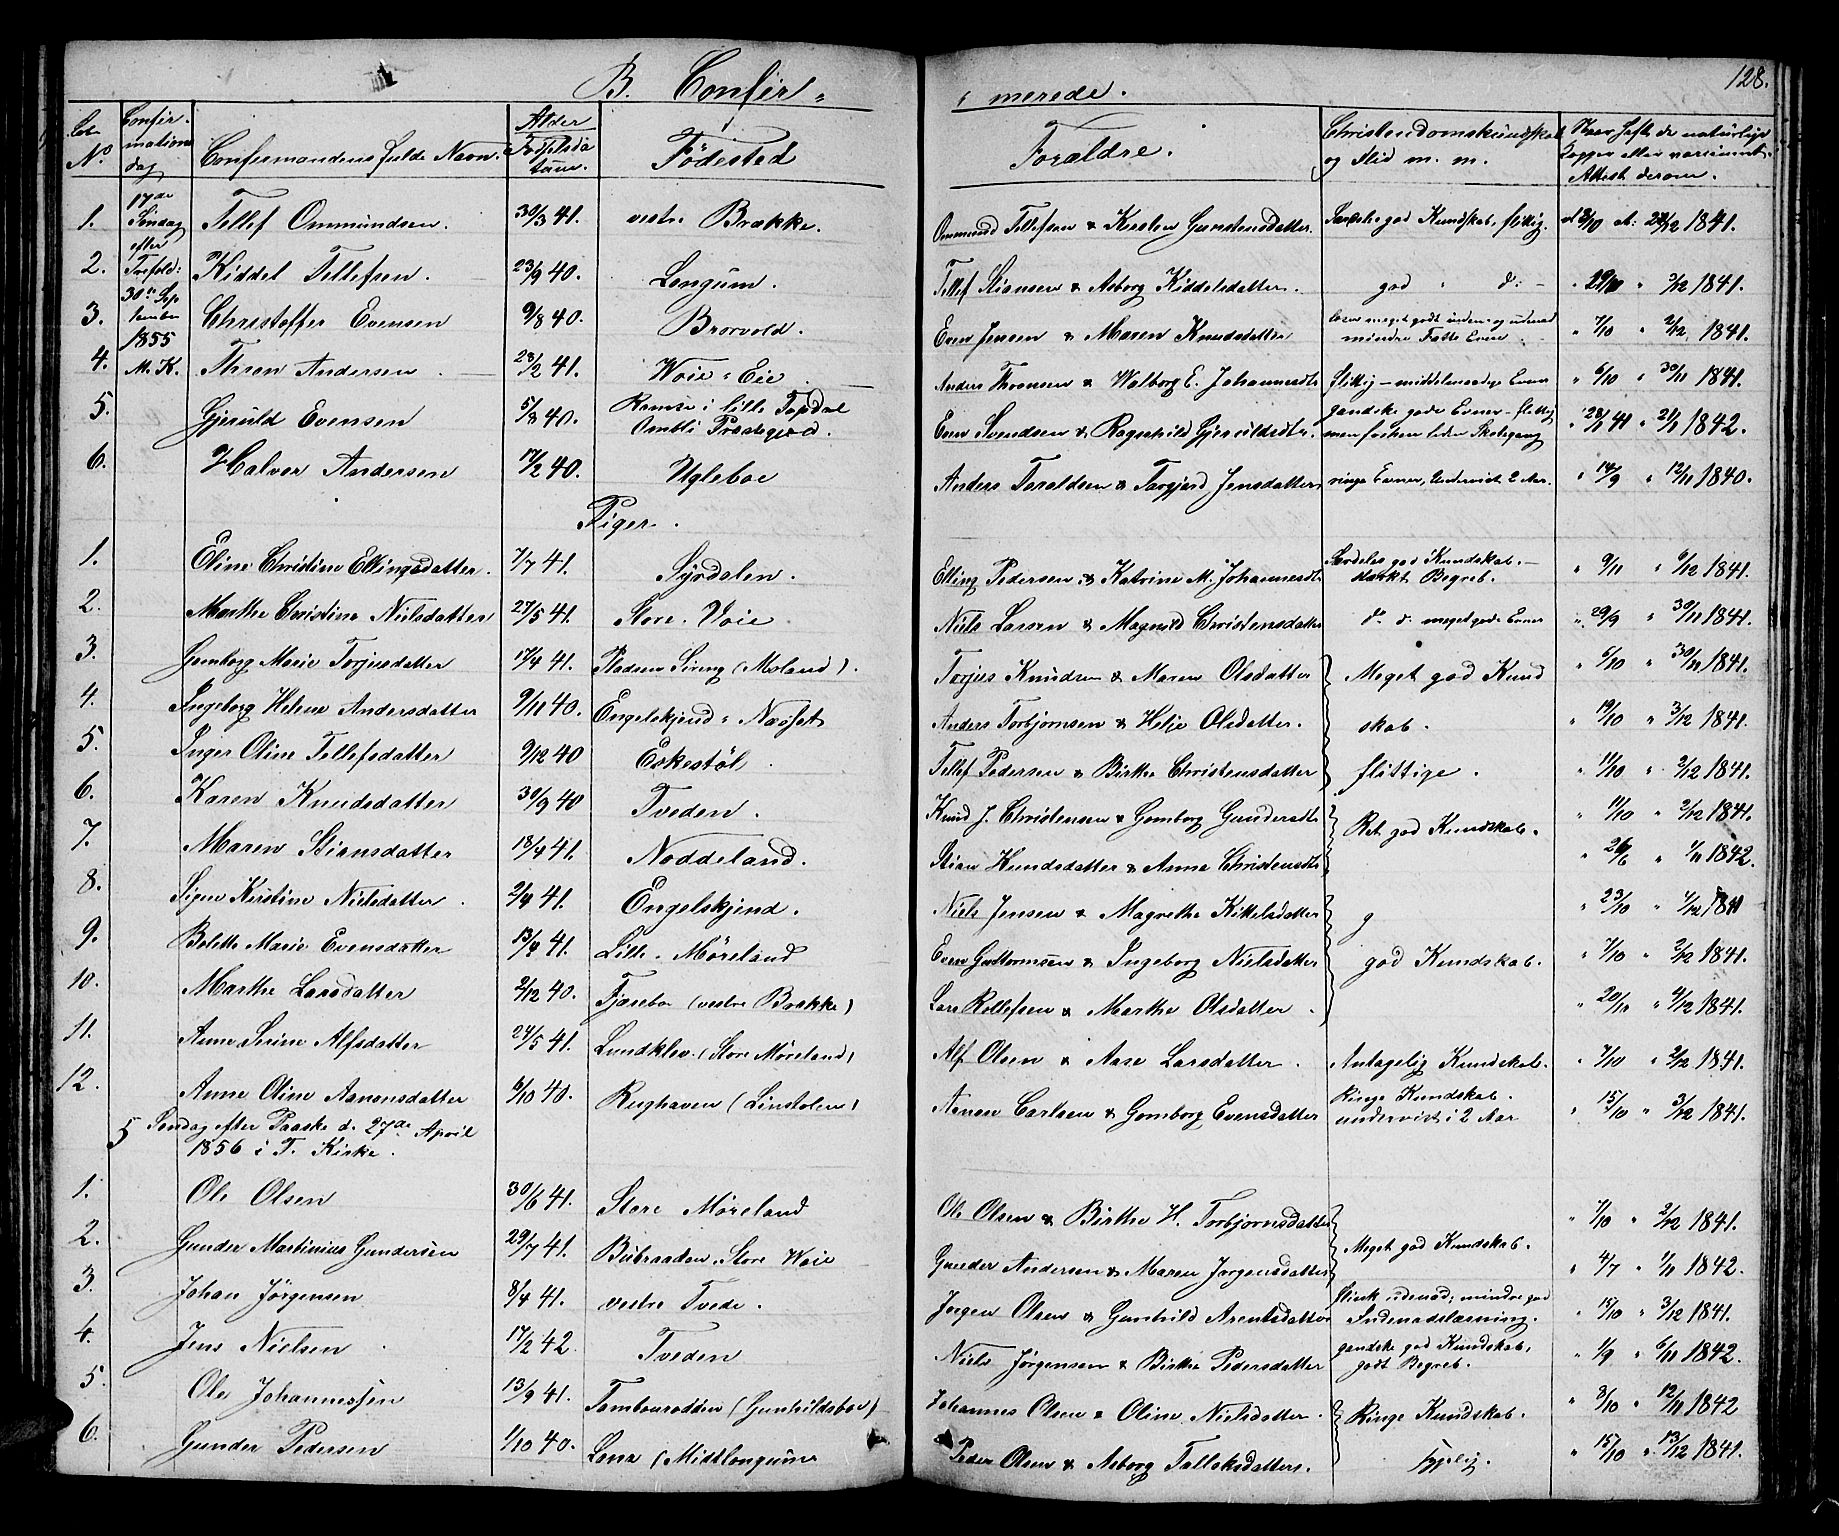 B. Confir-
merede.
128.
Lb. No
Confirmations dag
Confirmandens fulde Navn.
Alder
Fødselsda tum.
Fødested
Forældre.
Christendomskundskab og Flid m. m.
Naar havte de naturlige Kopper eller vaccineret. Attest derom.
17de Søndag efter Trefold: 30te September 1855 M. K.
1. Tellef Ommundsen. 30/3 41. vestre Brække. Ommund Tellefsen & Kirsten Gunstensdatter. Særdeles god Kundskab, flittig. 1841.
2. Kiddel Tellefsen. 23/9 40. Longum. Tellef Stiansen & Asborg Kiddelsdatter. god " d: - 3/12 1841.
3. Christoffer Evensen 9/8 40. Brorvold. Even Jensen & Maren Knudsdatter læser meget godt inden- og udenad mindre Fatte Evne. " 7/10 " 2/12 1841.
4. Thron Andersen 28/2 41. Woie - Eie. Anders Thronsen & Walborg E. Johannesdtr flittig - middelmaadige Evner " 6/10 " 30/11 1841.
5. Gjeruld Evensen 5/8 40. Ramse i lille Topdal Ombli Præstegjeld. Even Svendsen & Ragnhild Gjeruldsdtr. ganske gode Evner - flittig men forhen liden Skolegang 1842.
6. Halvor Andersen 17/2 40. Ugleboe Anders Taraldsen & Torgjerd Jensdatter ringe Evner, Undervist 2 Aar. " 14/9 " 12/11 1840.
Piger.
1. Eline Christine Ellingsdatter. 7/7 41. Syrdalen. Elling Pedersen & Katrine M. Johannesdtr Særdeles god Kundskab. - stærkt Begreb. " 9/11 " 6/12 1841.
2. Marthe Christine Nielsdatter 27/5 41. Store Voie Niels Larsen & Magnild Christensdatter do do meget gode Evner " 29/9 " 30/11 1841.
3. Gomborg Marie Torjusdatter 17/4 41. Pladsen Sireng (Moland). Torjus Knudsen & Maren Olsdatter Meget god Kund " 6/10 " 30/11 1841.
4. Ingeborg Helene Andersdatter 9/11 40. Engelskjend - Næsset Anders Torbjørnsen & Helje Olsdatter. skab. " 19/10 " 3/12 1841.
5. Inger Oline Tellefsdatter 9/12 40 Eskestøl. Tellef Pedersen & Birthe Christensdatter flittige. " 11/10 " 2/12 1841.
6. Karen Knudsdatter 30/9 40 Tveden. Knud J. Christensen & Gomborg Gundersdtr Ret god Kundskab. " 11/10 " 2/12 1841.
7. Maren Stiansdatter 18/4 41. Noddeland. Stian Knudsdatter & Anne Christensdtr 1/11 1842.
8. Signe Kirstine Nielsdatter. 2/4 41. Engelskjend. Niels Jensen & Magrethe Kittelsdatter g " 23/10 " 1/12 1841
9. Bolette Marie Evensdatter 13/4 41. Lille Møreland Even Guttormsen & Ingeborg Nielsdatter god Kundskab. " 7/10 " 2/12 1841.
10. Marthe Larsdatter 2/12 40. Tjæreboe (vestre Brække) Lars Rollefsen & Marthe Olsdatter. " 20/10 " 4/12 1841.
11. Anne Serine Alfsdatter 24/5 41. Lundklev (Store Møreland) Alf Olsen & Aase Larsdatter. Antagelig Kundskab. " 7/10 " 2/12 1841.
12. Anne Oline Aanonsdatter 6/10 40. Rughaven (Linstolen) Aanon Carlsen & Gomborg Evensdatter Ringe Kundskab. undervist i 2 Aar " 15/10 " 3/12 1841.
5 Søndag efter Paaske d. 27de April
1856 i T. Kirke.
1. Ole Olsen 30/6 41. Store Møreland Ole Olsen & Birthe H. Torbjørnsdatter " 7/10 " 2/12 1841.
2. Gunder Martinius Gundersen 29/7 41. Bubraaden Store Woie Gunder Andersen & Maren Jørgensdatter Meget god Kundskab. " 4/7 " 1/11 1842.
3. Johan Jørgensen 8/4 41. vestre Tvede. Jørgen Olsen & Gunhild Arentsdatter flink udenad; mindre god Indenadslæsning. 3/12 1841.
4. Jens Nielsen 17/2 42. Tveden Niels Jørgensen & Birthe Pedersdatter ganske god Kundskab, godt Begreb. " 1/9 " 6/11 1842.
5. Ole Johannessen 13/9 41. Tambourodden (Gunhildsboe) Johannes Olsen & Oline Nielsdatter. Ringe Kundskab. " 8/10 " 12/11 1842
6. Gunder Pedersen 1/10 40. Lone (Midtlongum) Peder Olsen & Asborg Tallaksdatter. " 15/10 " 13/12 1841.